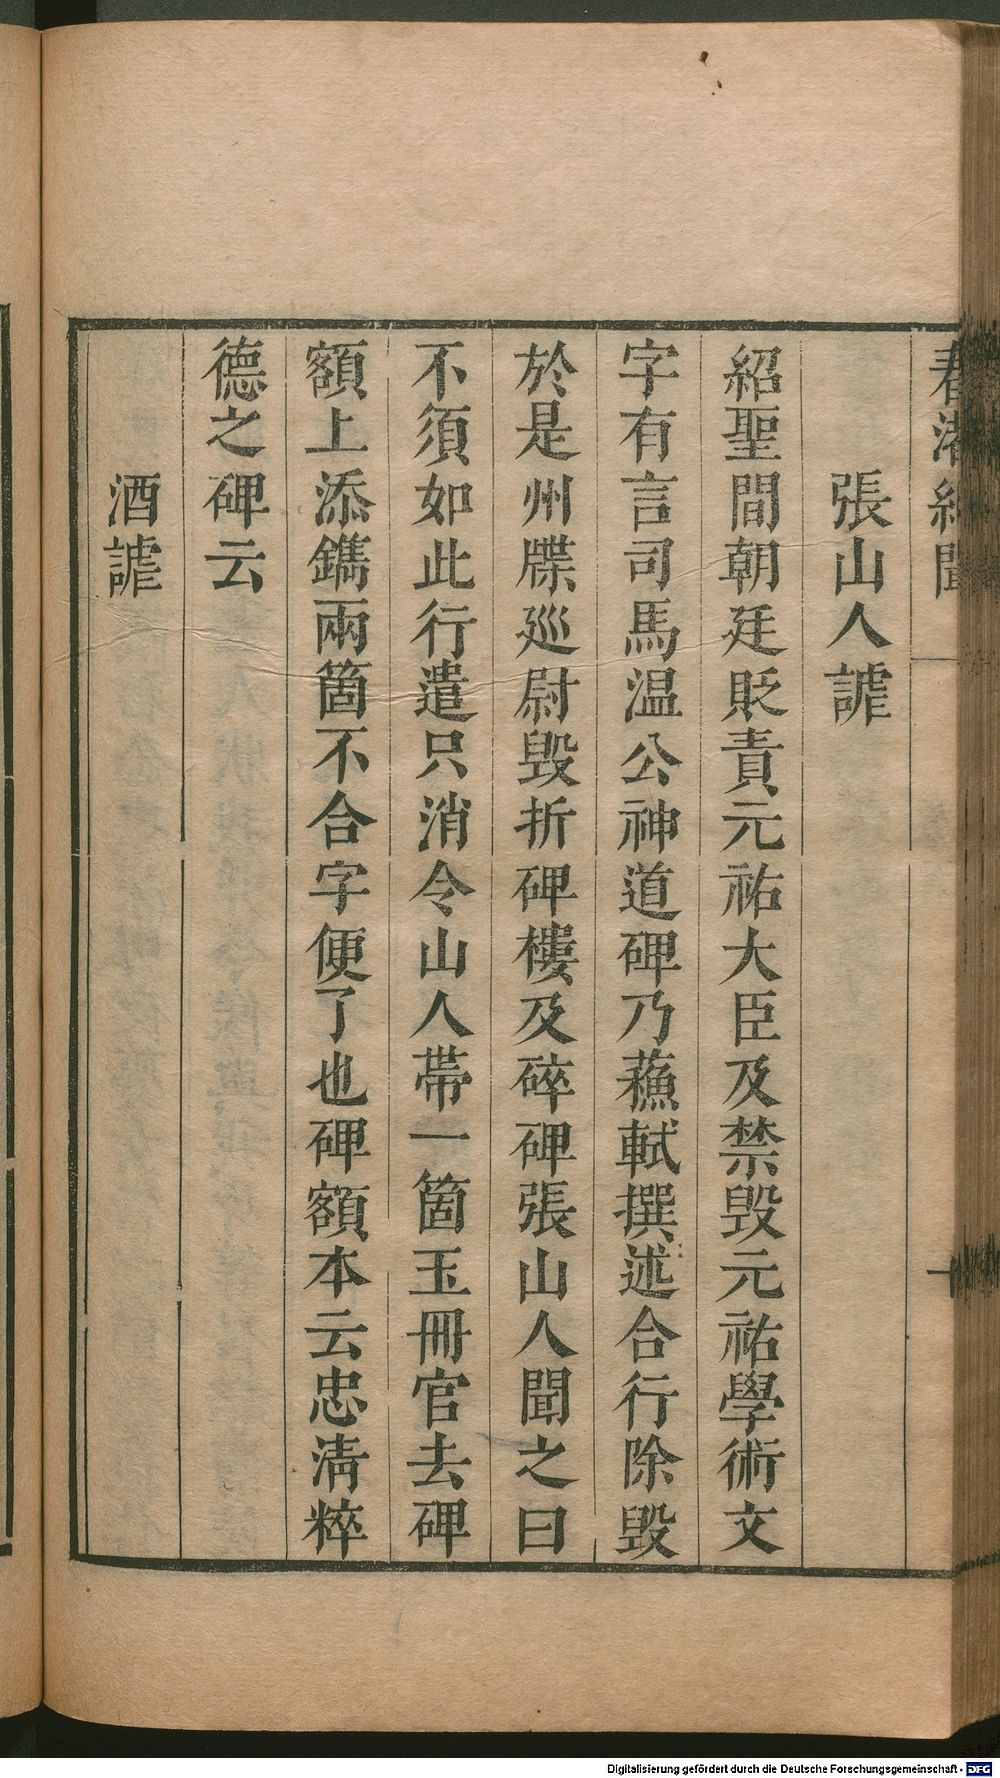 春渚紀聞
十
張山人謔
紹聖間朝廷貶責元祐大臣及禁毀元祐學術文
字有言司馬温公神道碑乃蘓軾撰述合行除毀
於是州牒巡尉毀折碑樓及碎碑張山人聞之曰
不須如此行遣只消令山人帶一箇玉冊官去碑
額上添鐫兩箇不合字便了也碑額本云忠淸粹
德之碑云
酒謔
Digitalisierung gefördert durch die Deutsche Forschungsgemeinschaft - DFG